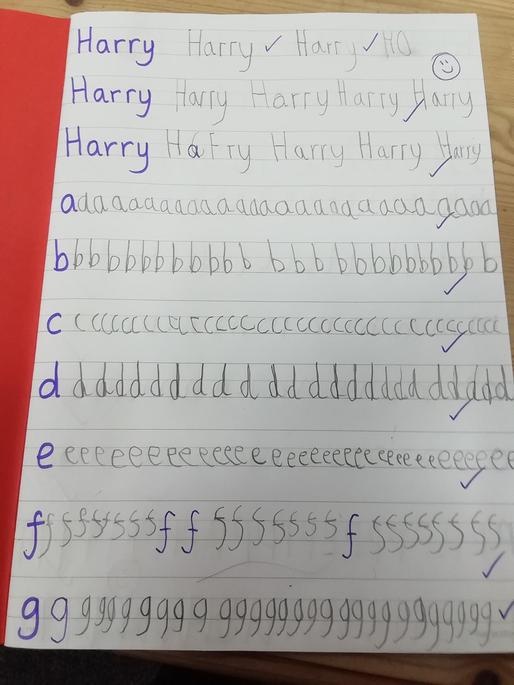 Harry Harry Harry HO
Harry Harry Harry Harry Harry
Harry HaFry Harry Harry Harry
a a a a a a a a a a a a a a a a a a a a a a a a a a a
b b b b b b b b b b b b b b b b b b b b b b b b
c c c c c c c c c c c c c c c c c c c c c c c c c c c c c c c c
d d d d d d d d d d d d d d d d d d d d d d d
e e e e e e e e e e e e e e e e e e e e e e e e e e e e e e e e
f f f f f f f f f f f f f f f f f f f f f f f f f f
g g g g g g g g g g g g g g g g g g g g g g g g g g g